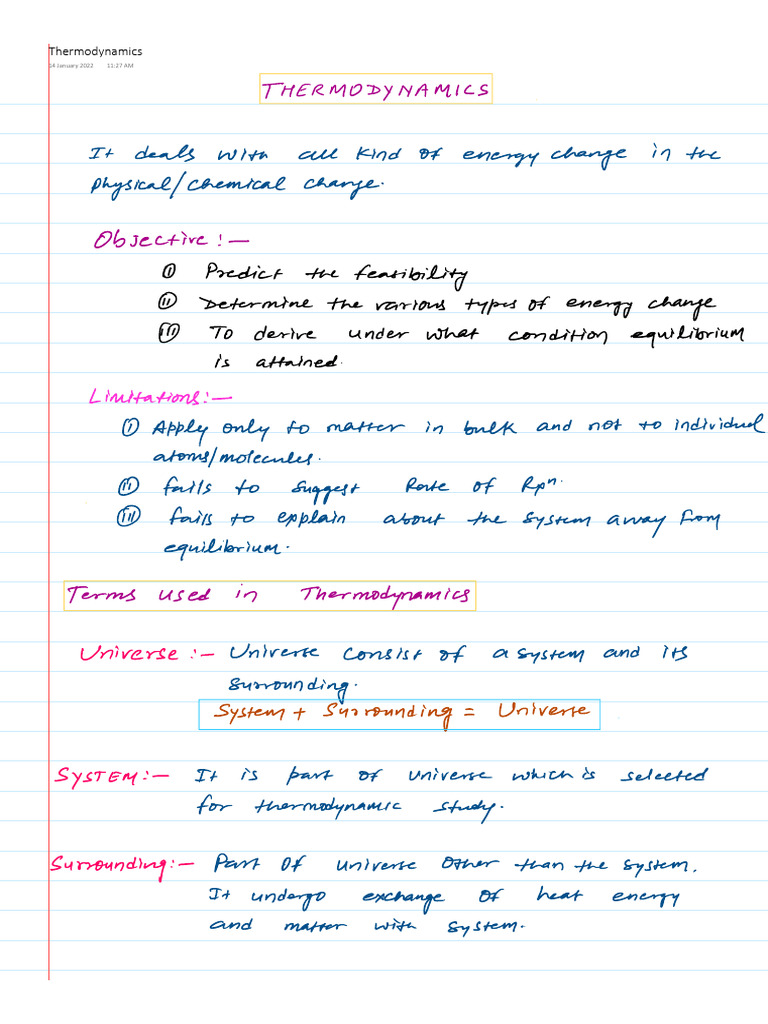 Thermodynamics
14 January 2022 11:27 AM
THERMODYNAMICS
It deals with all kind of energy change in the
physical/chemical change.
Objective :-
(i) Predict the feasibility
(ii) Determine the various types of energy change
(iii) To derive under what condition equilibrium
is attained.
Limitations:-
(i) Apply only to matter in bulk and not to individual
atoms/molecules.
(ii) fails to suggest Rate of Rxn.
(iii) fails to explain about the system away from
equilibrium.
Terms used in Thermodynamics
Universe :- Universe consist of a system and its
surrounding.
System + Surrounding = Universe
SYSTEM:- It is part of universe which is selected
for thermodynamic study.
Surrounding:- Part of universe other than the system.
It undergo exchange of heat energy
and matter with system.